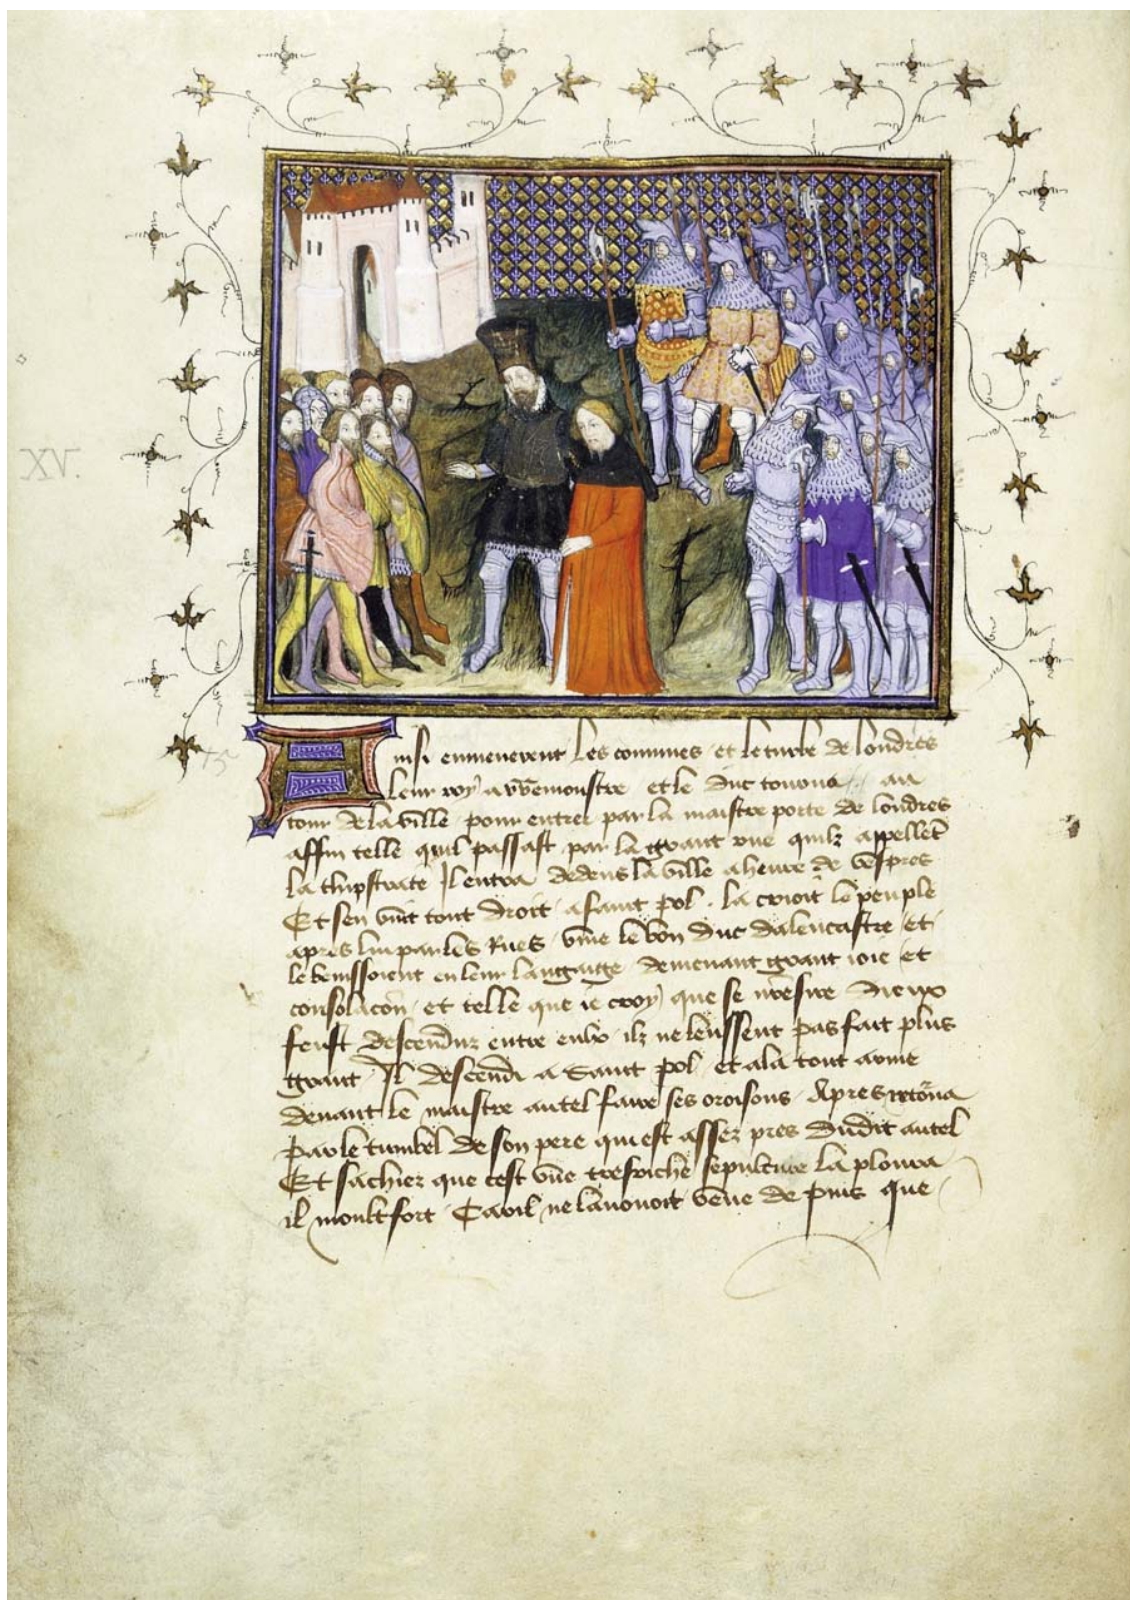 XV.
Ainsi enmenerent les communes et le turbe de londres
leur roy a west̄monstre et le duc tourna au
tour de la ville pour entrer par la maistre porte de londres
affin telle quil passast par la grant rue quilz appellēt
la thipstrate Il entra dedens la ville a heure de vespres
Et sen vint tout droit a saint pol . la crioit le peuple
apres lui par les rues vive le bon duc dalencastre et
le benissoient en leur langaige demenant grant ioie et
consolacōn et telle que ie croy que se nr̄e sire dieux
feust descendu entre eulx ilz ne leussent pas fait plus
grant Il descendi a Saint pol et ala tout arme
devant le maistre autel faire ses oroisons Apres retōna
par le tumbel de son pere qui est assez pres dudit autel
Et sachiez que cest vn̄e tresriche sepulture la ploura
il moult fort Car il ne lavouoit veue de puis que